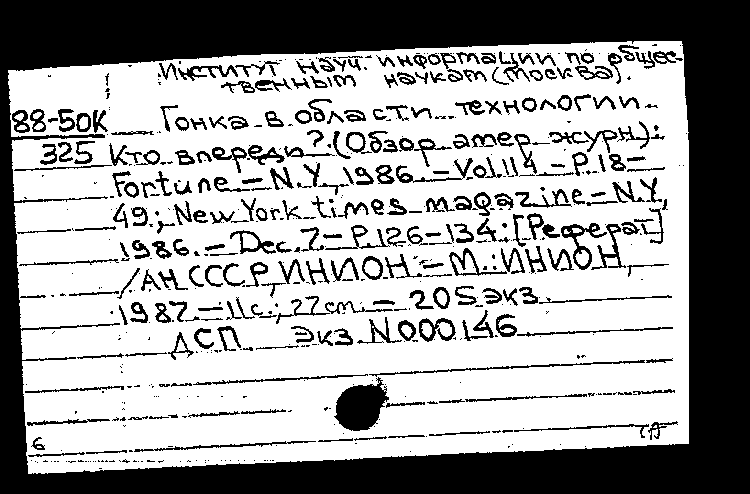 Институт науч. информации по общес-
твенным наукам (Москва).
88-50К Гонка в области технологии.
325 Кто впереди? (Обзор амер. журн.):
Fortune. – N.Y., 1986. – Vol.114. – P.18–
49.; New York times magazine. – N.Y.,
1986. – Dec.7. – P.126–134.: [Реферат]
/АН СССР, ИНИОН. – М.: ИНИОН,
1987. – 11с.; 27см. – 205 экз.
ДСП Экз. N000146
6